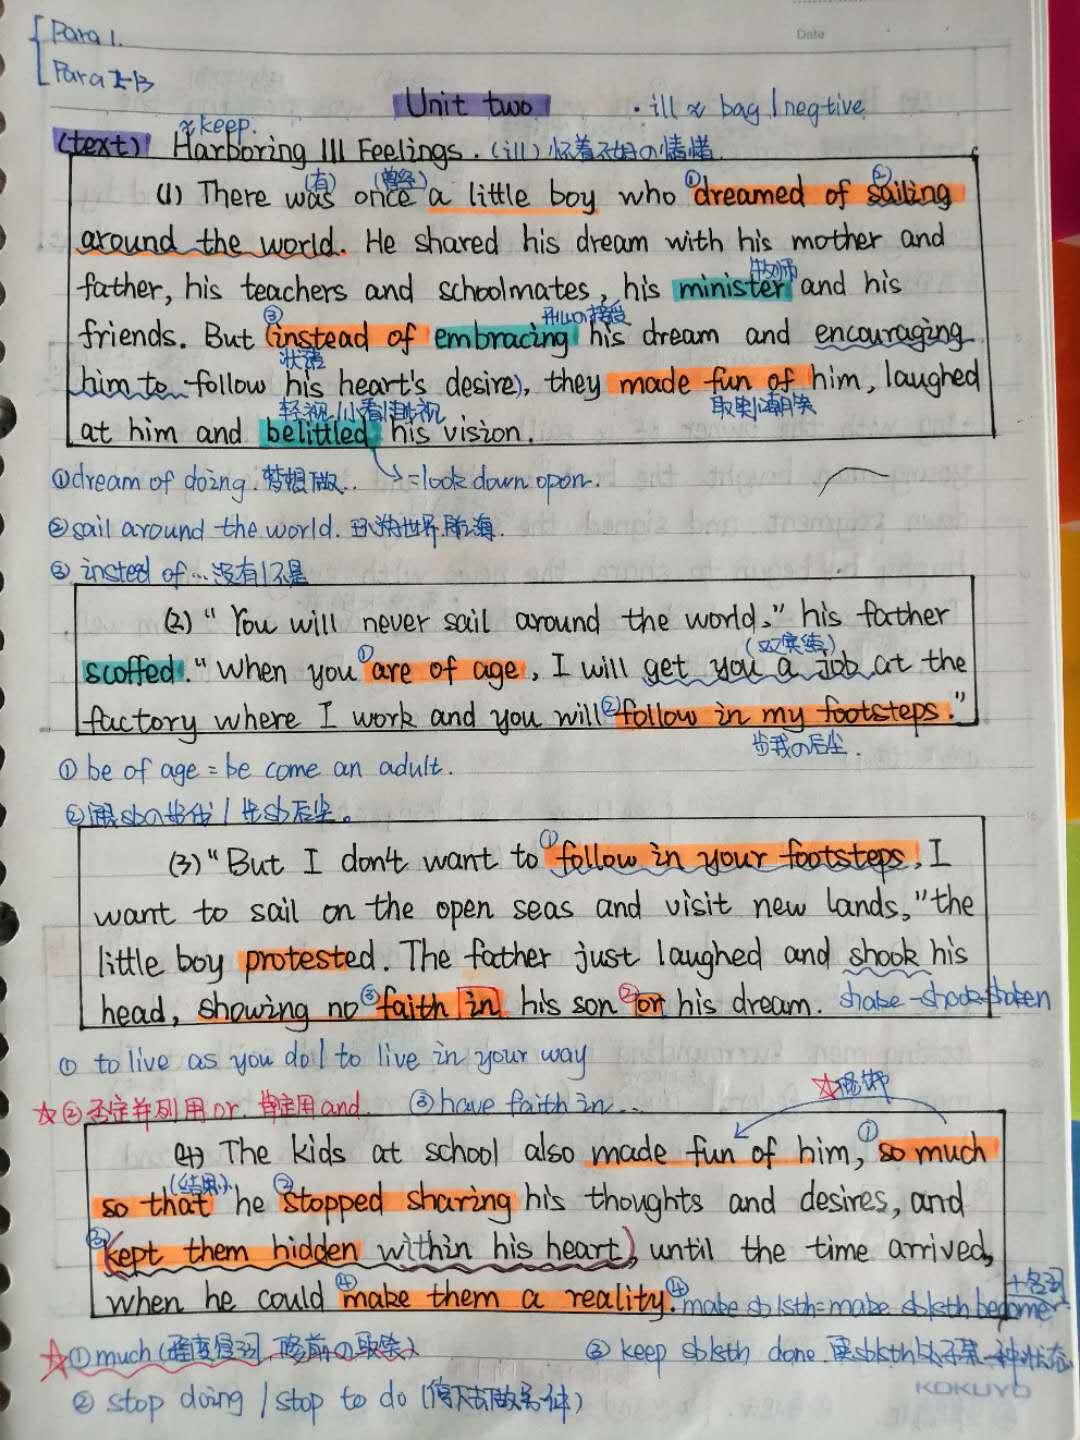 Para 1.
Para 2-13
Date
Unit two
· ill ≈ bag / negtive
≈ keep.
(text) Harboring Ill Feelings. (ill) 怀着不好の情绪
(有) (曾经)
(1) There was once a little boy who ①dreamed of ②sailing
around the world. He shared his dream with his mother and
牧师
father, his teachers and schoolmates, his minister and his
friends. But ③(instead of embracing his dream and encouraging
him to follow his heart's desire), they made fun of him, laughed
轻视/小看/鄙视 取笑/嘲笑
at him and belittled his vision.
①dream of doing. 梦想做.. → =look down opon.
②sail around the world. 环游世界航海.
③ insted of... 没有/不是
(2) "You will never sail around the world," his father
(双宾结)
scoffed. "When you ①are of age, I will get you a job at the
factory where I work and you will ②follow in my footsteps."
步我の后尘.
① be of age = be come an adult.
②跟sbの步伐 / 步sb后尘。
(3) "But I don't want to ①follow in your footsteps, I
want to sail on the open seas and visit new lands," the
little boy protested. The father just laughed and shook his
head, showing no ③faith in his son ②or his dream. shake-shook-shaken
① to live as you do / to live in your way
☆②否定并列用or. 肯定用and. ③have faith in...
☆修饰
(4) The kids at school also made fun of him, ①so much
(结果)
so that he ②stopped sharing his thoughts and desires, and
③(kept them hidden within his heart), until the time arrived,
when he could ④make them a reality. ④make sb/sth=make sb/sth become
+名词
☆①much (程度副词, 修前の取笑) ③ keep sb/sth done. 要sb/sth处于某一种状态
② stop doing / stop to do (停下去做另一件)
KOKUYO